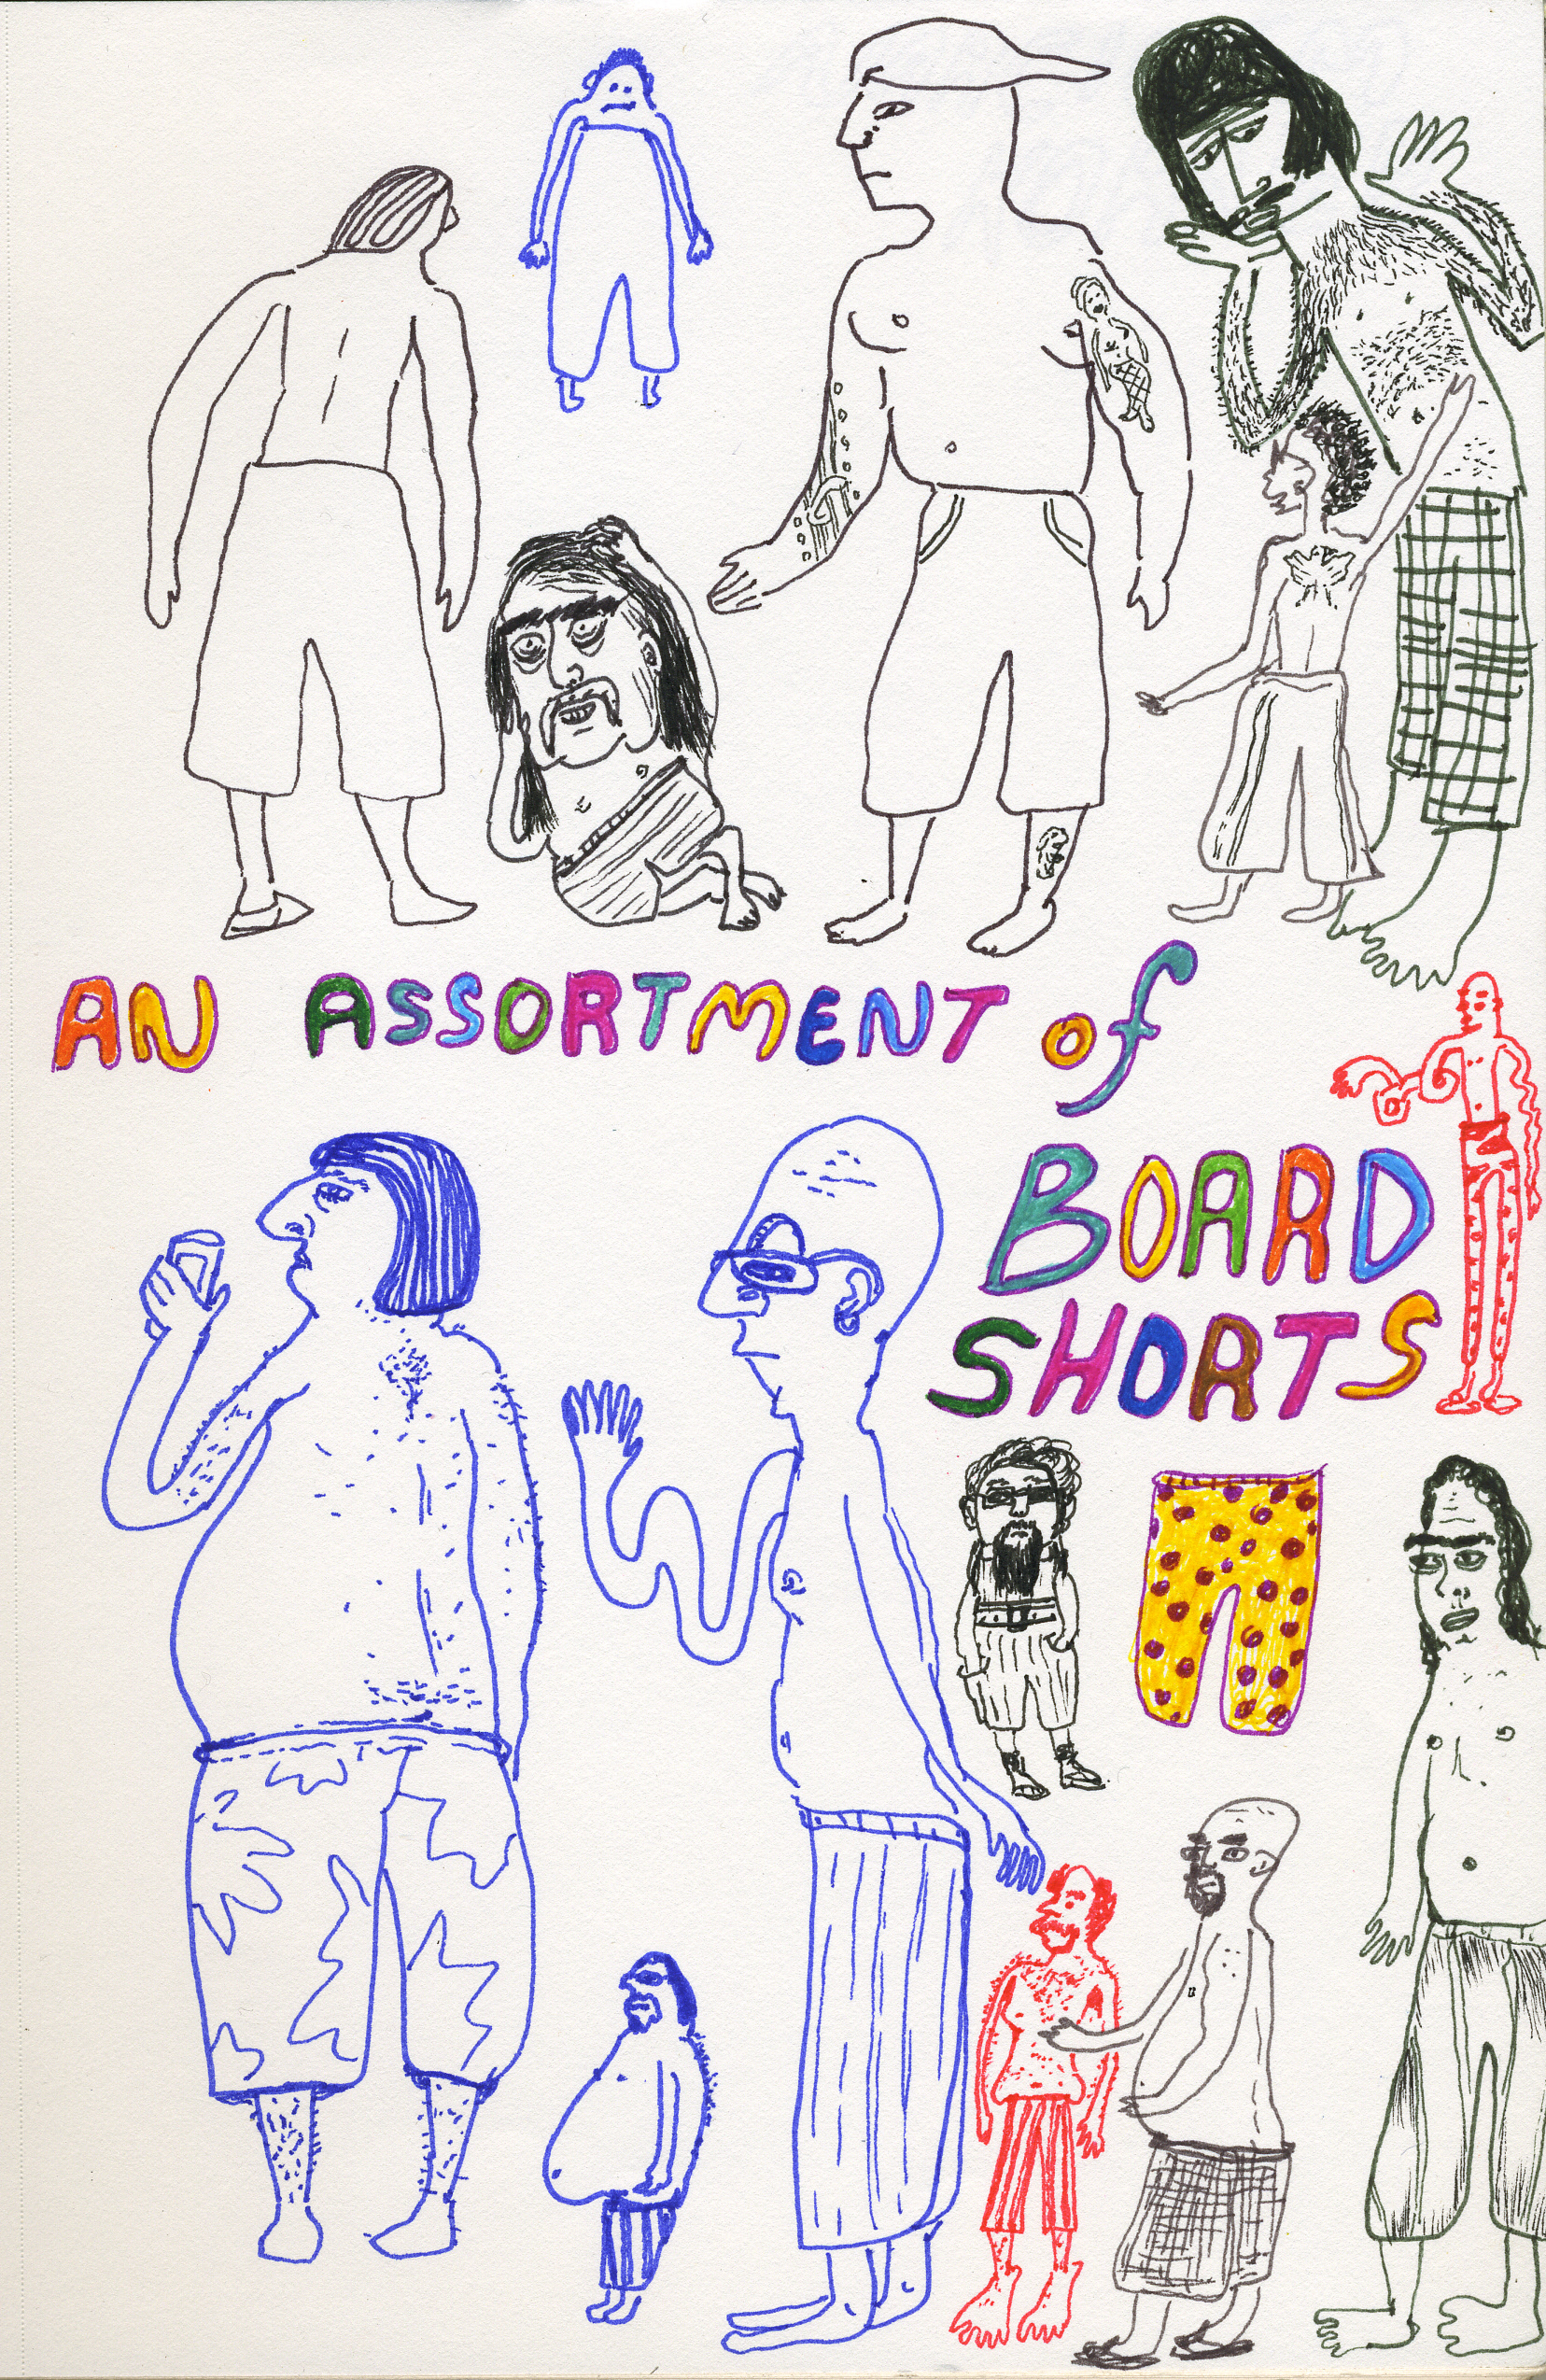 AN ASSORTMENT of
BOARD
SHORTS